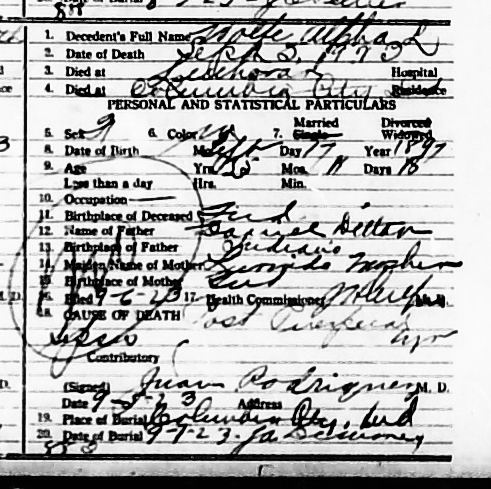 1. Decedent's Full Name Wolfe Alpha L
2. Date of Death Sept 5, 1923
3. Died at Lutheran Hospital
4. Died at Columbia City Ind Residence
PERSONAL AND STATISTICAL PARTICULARS
Married Divorced
5. Sex F 6. Color W 7. Single Widowed
8. Date of Birth Mo. Sept Day 17 Year 1897
9. Age Yrs. 25 Mos. 11 Days 18
Less than a day Hrs. Min.
10. Occupation
11. Birthplace of Deceased Ind
12. Name of Father Samuel
13. Birthplace of Father Indiana
14. Maiden Name of Mother
15. Birthplace of Mother Ind
16. Filed 9-6-23 17. Health Commissioner M. D.
18. CAUSE OF DEATH Post Puerperal
Contributory
(Signed) Juan Rodriguez M. D.
Date 9-5-23 Address
19. Place of Burial Columbia City, Ind
20. Date of Burial 9-7-23